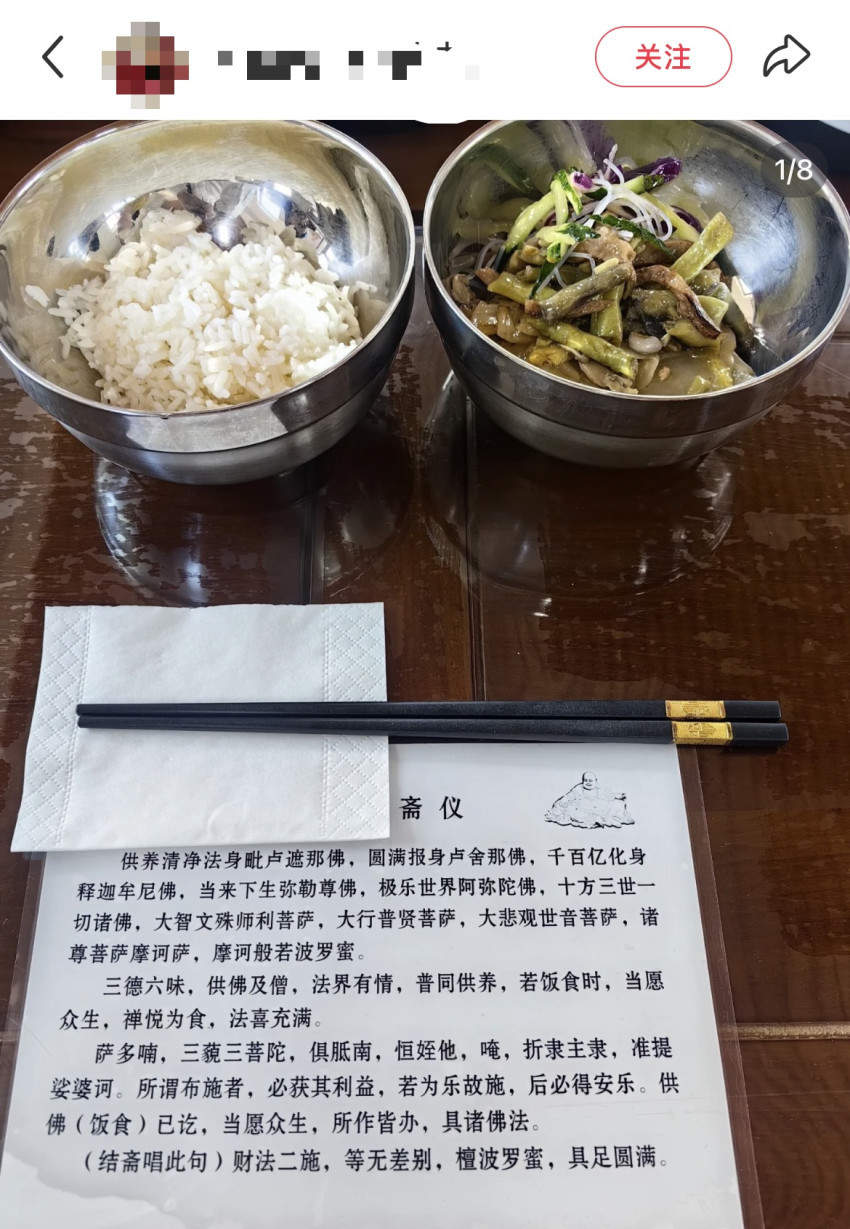 关注
1/8
斋仪
供养清净法身毗卢遮那佛，圆满报身卢舍那佛，千百亿化身
释迦牟尼佛，当来下生弥勒尊佛，极乐世界阿弥陀佛，十方三世一
切诸佛，大智文殊师利菩萨，大行普贤菩萨，大悲观世音菩萨，诸
尊菩萨摩诃萨，摩诃般若波罗蜜。
三德六味，供佛及僧，法界有情，普同供养，若饭食时，当愿
众生，禅悦为食，法喜充满。
萨多喃，三藐三菩陀，俱胝南，恒姪他，唵，折隶主隶，准提
娑婆诃。所谓布施者，必获其利益，若为乐故施，后必得安乐。供
佛（饭食）已讫，当愿众生，所作皆办，具诸佛法。
（结斋唱此句）财法二施，等无差别，檀波罗蜜，具足圆满。